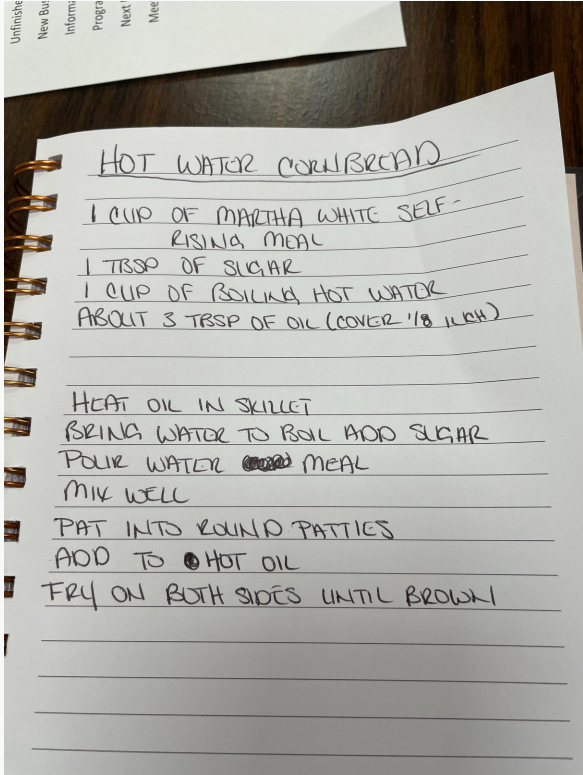 Unfinishe
New Bus
Informa
Progra
Next
Mee
HOT WATER CORNBREAD
1 CUP OF MARTHA WHITE SELF-
RISING MEAL
1 TBSP OF SUGAR
1 CUP OF BOILING HOT WATER
ABOUT 3 TBSP OF OIL (COVER 1/8 INCH)
HEAT OIL IN SKILLET
BRING WATER TO BOIL ADD SUGAR
POUR WATER MEAL
MIX WELL
PAT INTO ROUND PATTIES
ADD TO HOT OIL
FRY ON BOTH SIDES UNTIL BROWN